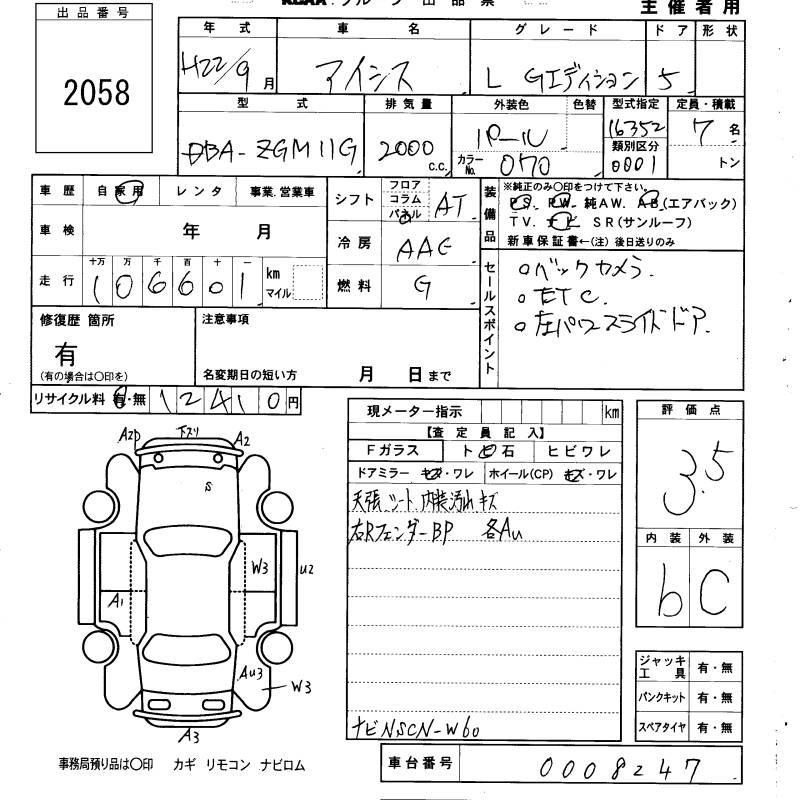 出品番号
2058
主催者用
年式 車名 グレード ドア 形状
H22/9月 アイシス L Gエディション 5
型式 排気量 外装色 色替 型式指定 定員・積載
DBA-ZGM11G 2000 c.c. パール 16352 7名
カラーNo. 070 類別区分 0001 トン
車歴 自家用 レンタ 事業.営業車
車検 年 月
走行 十万 万 千 百 十 一
106601 km マイル
シフト フロア コラム パネル AT
冷房 AAC
燃料 G
装備品 ※純正のみ〇印をつけて下さい。
PS. PW. 純AW. AB(エアバック)
TV. ナビ SR(サンルーフ)
新車保証書←(注) 後日送りのみ
セールスポイント
○バックカメラ.
○ETC.
○左パワースライドドア.
修復歴 箇所
有
(有の場合は〇印を)
注意事項
名変期日の短い方 月 日まで
リサイクル料 有・無 12410円
現メーター指示 km
【査定員記入】
Fガラス トビ石 ヒビワレ
ドアミラー キズ・ワレ ホイール(CP) キズ・ワレ
天張 シート 内装汚れ キズ
右Rフェンダー BP 各Au
ナビNSCN-W60
評価点
3.5
内装 外装
b C
ジャッキ工具 有・無
パンクキット 有・無
スペアタイヤ 有・無
車台番号 0008247
下スリ
A2
S
W3
U2
A1
Au3
W3
A3
事務局預り品は〇印 カギ リモコン ナビロム